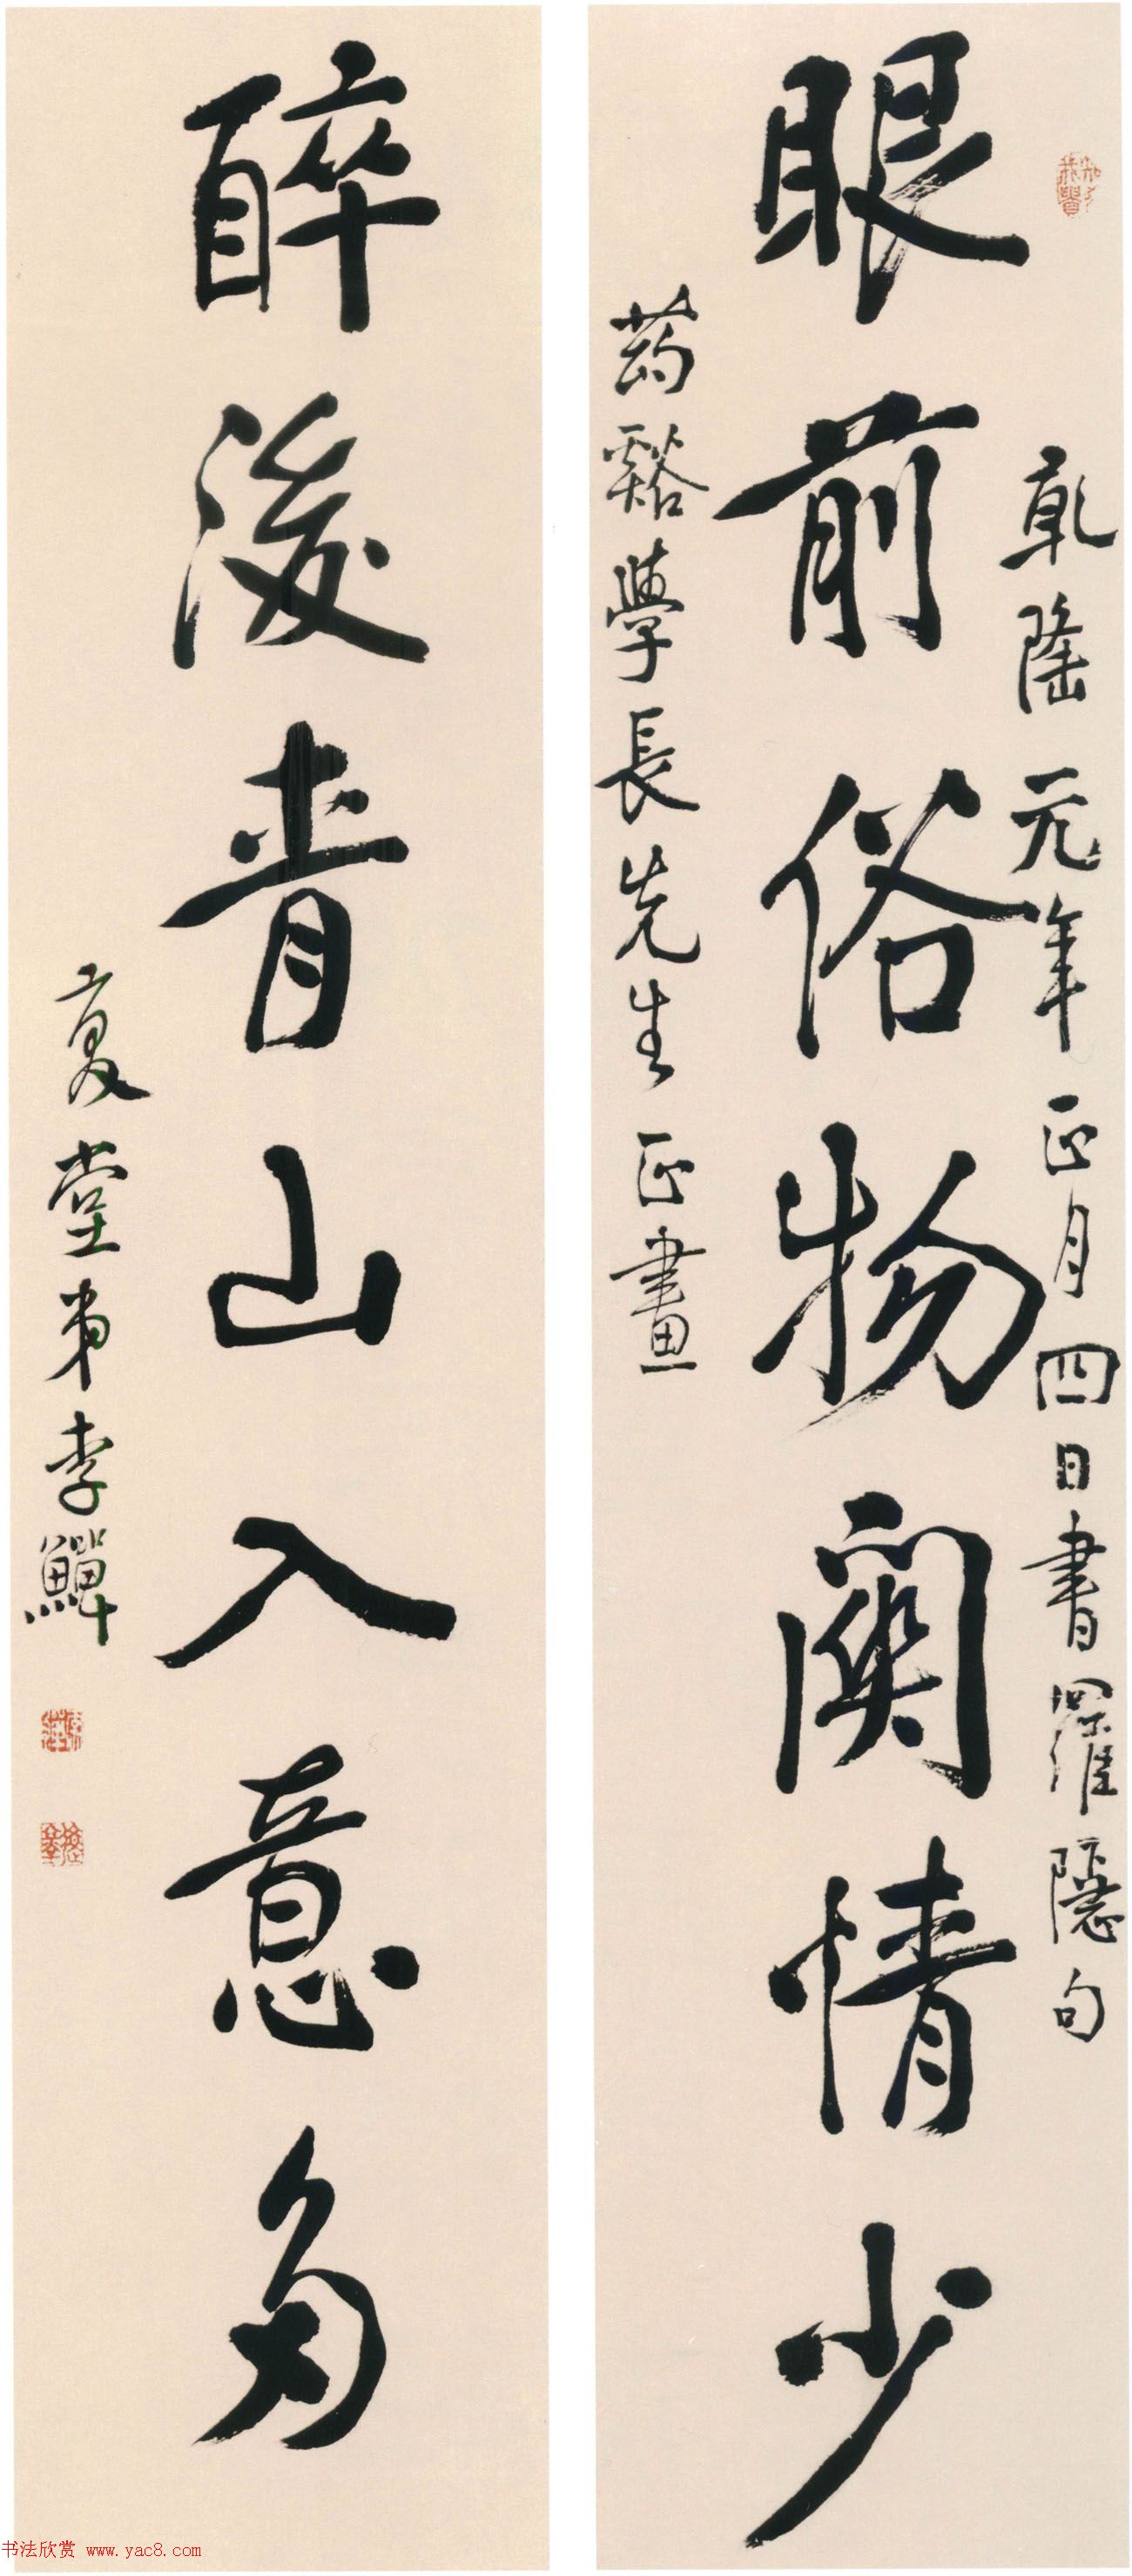 乾隆元年正月四日書羅隱句
眼前俗物關情少
药谿學長先生正畫
醉後青山入意多
复堂弟李鱓
书法欣赏 www.yac8.com